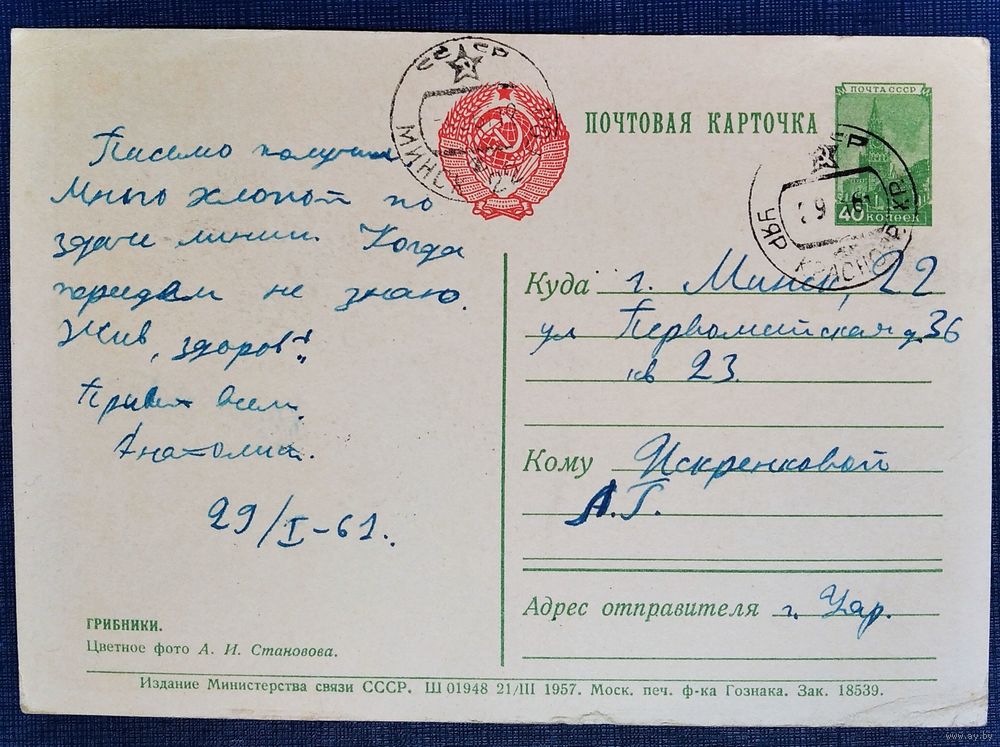 ПОЧТОВАЯ КАРТОЧКА
ПОЧТА СССР
40 КОПЕЕК
СССР
МИНСК
СССР
29
61
Письмо получил
Много хлопот по
здаче линии. Когда
передам не знаю.
Жив, здоров!
Привет всем.
Анатолий.
29/I-61.
Куда г. Минск, 22
ул Первомайская д. 36
кв 23.
Кому Искренковой
А.Г.
Адрес отправителя г. Уяр.
ГРИБНИКИ.
Цветное фото А. И. Становова.
Издание Министерства связи СССР. Ш 01948 21/III 1957. Моск. печ. ф-ка Гознака. Зак. 18539.
www.ay.by